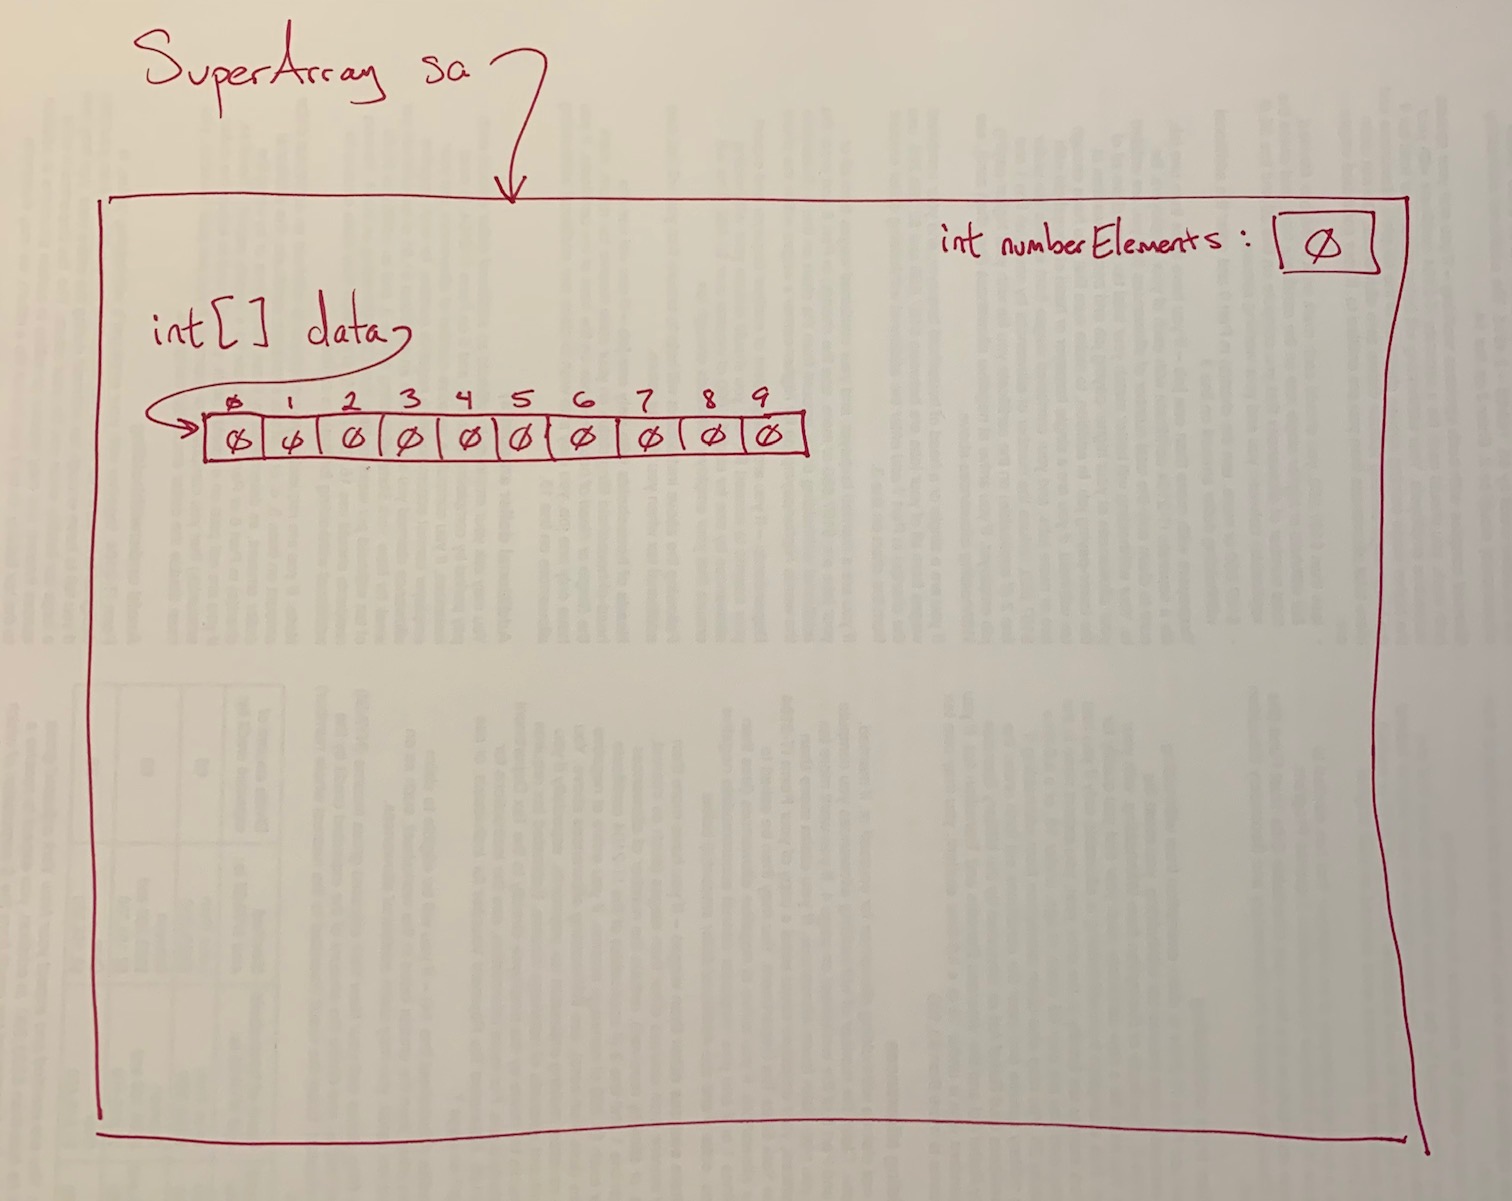 SuperArray sa
int numberElements : Ø
int[] data
Ø 1 2 3 4 5 6 7 8 9
Ø Ø Ø Ø Ø Ø Ø Ø Ø Ø